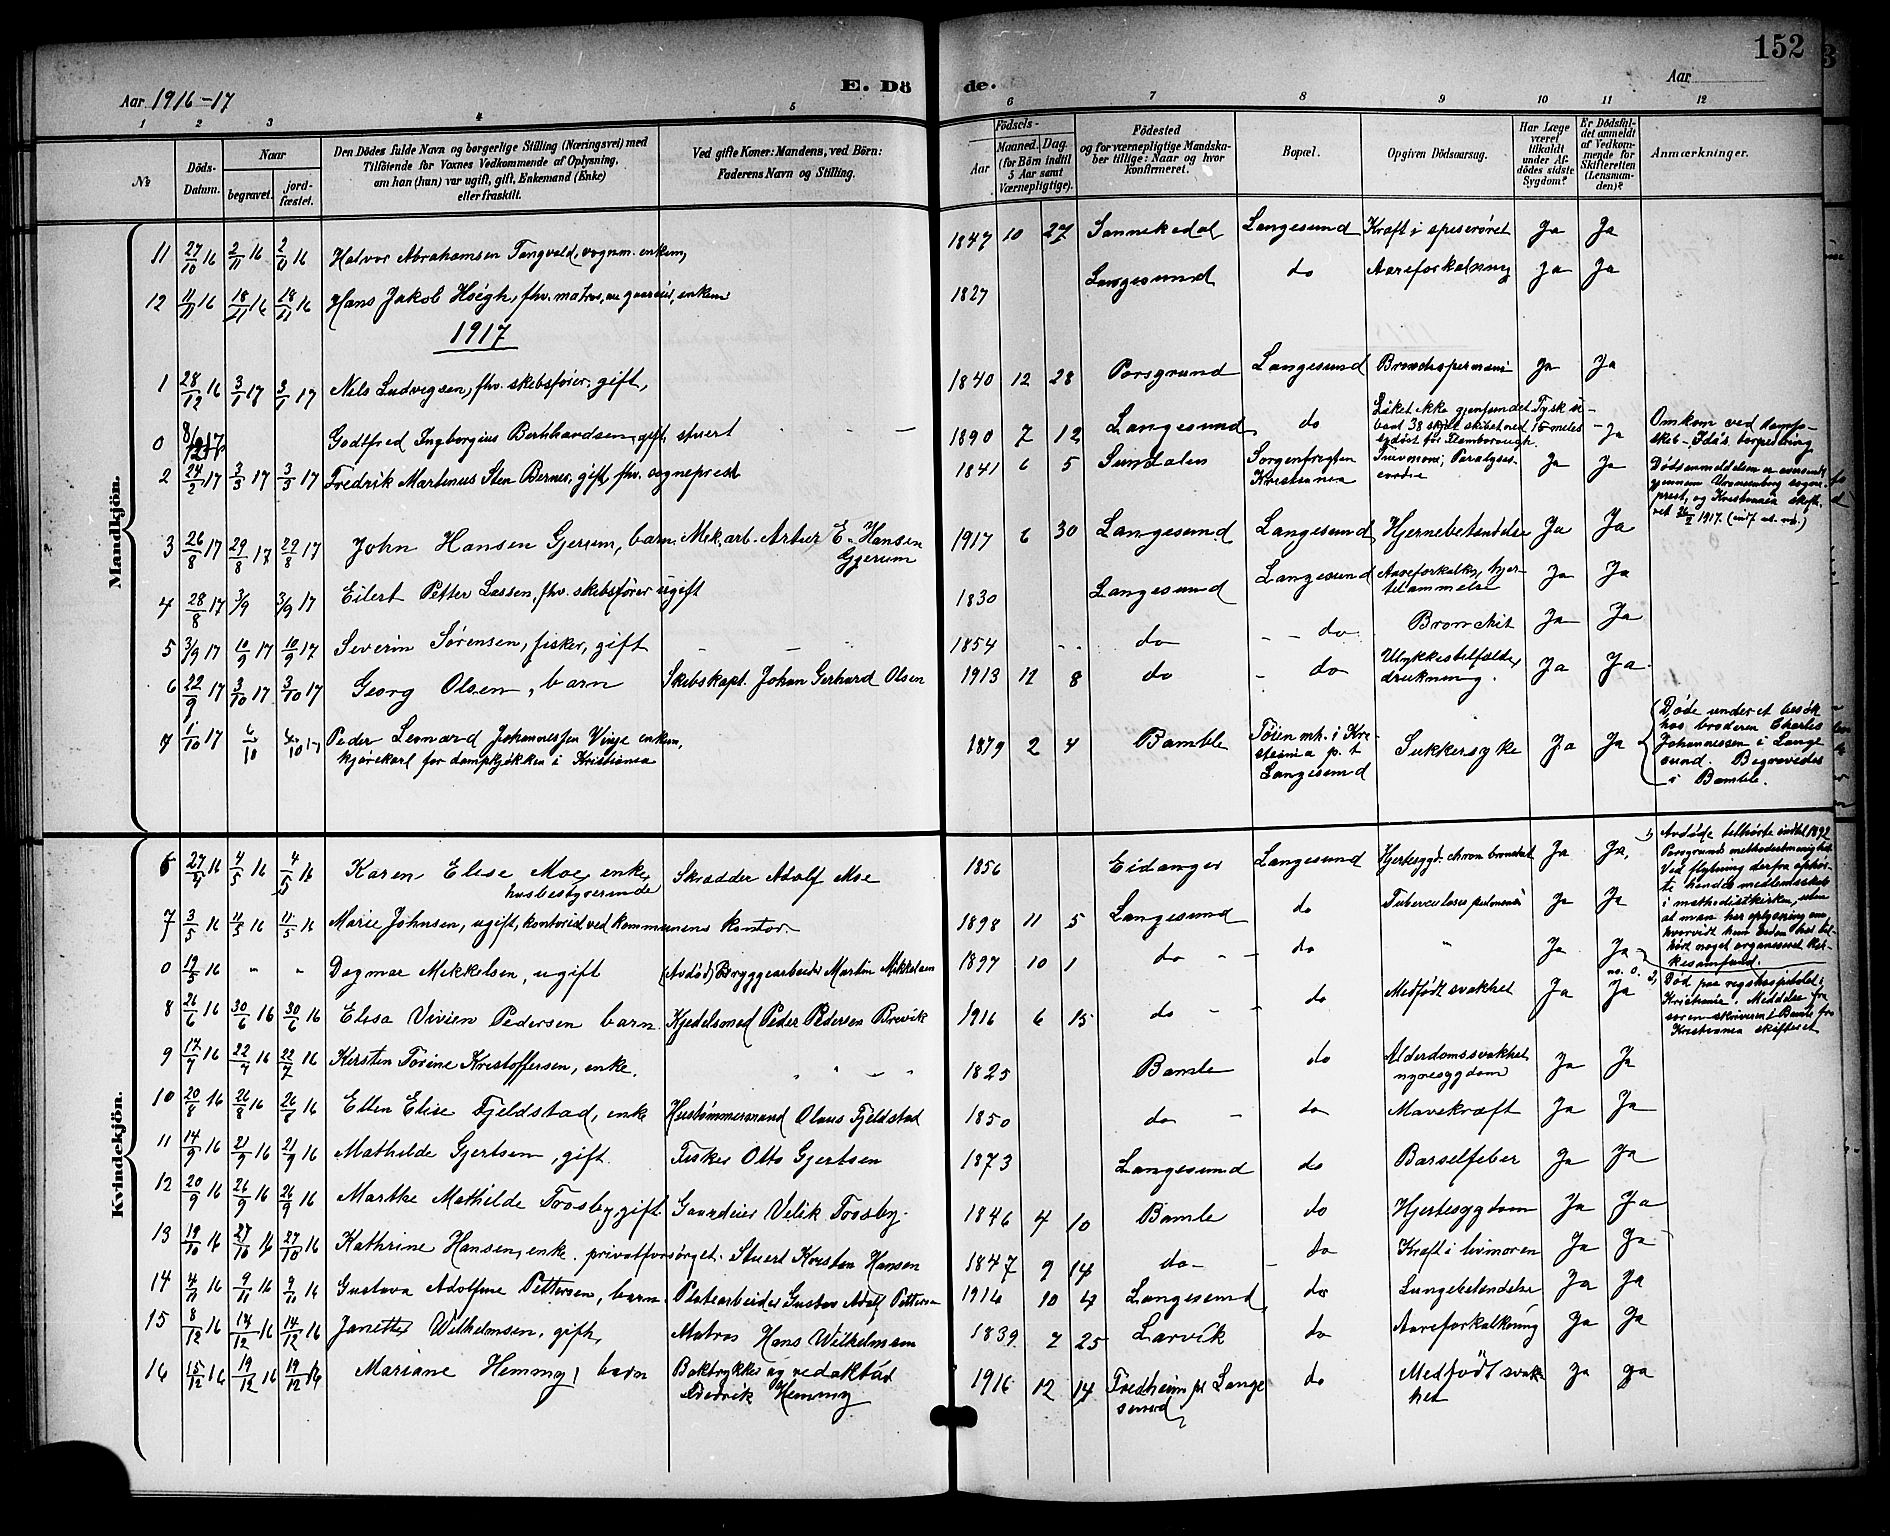 152
Aar 1916-17
E. Dö de.
Aar
1 2 3 4 5 6 7 8 9 10 11 12
No
Döds-Datum.
Naar
begravet.
jordfæstet.
Den Dödes fulde Navn og borgerlige Stilling (Næringsvei) med
Tilföiende for Voxnes Vedkommende af Oplysning,
om han (hun) var ugift, gift, Enkemand (Enke)
eller fraskilt.
Ved gifte Koner: Mandens, ved Börn:
Faderens Navn og Stilling.
Födsels-
Aar
Maaned. Dag.
(for Börn indtil
5 Aar samt
Værnepligtige).
Födested
og for værnepligtige Mandskaber tillige: Naar og hvor
konfirmeret.
Bopæl.
Opgiven Dödsaarsag.
Har Læge været tilkaldt under Afdödes sidste Sygdom?
Er Dödsfaldet anmeldt af Vedkommende for Skifteretten (Lensmanden)?
Anmærkninger.
Mandkjön.
11 27/10 16 2/11 16 2/11 16 Halvor Abrahamsen Tangvald, vognm. enkem, 1847 10 27 Sannikedal Langesund Kræft i spiserøret Ja Ja
12 11/11 16 18/11 16 18/11 16 Hans Jakob Høegh, fhv. matros, enkem 1827 Langesund do Aareforkalkning Ja Ja
1917
1 28/12 16 3/1 17 3/1 17 Nils Ludvigsen, fhv. skibsfører, gift, 1840 12 28 Porsgrund Langesund Ja Ja
0 8/2 17 Godtfred Ingborgius Bernhardsen, gift, stuert 1890 7 12 Langesund do Liket ikke gjenfundet Tysk ubaat skjøt skibet ned 15 miles sydøst for Flamborough. - Ja Omkom ved dampskib "Ida's" torpedering
2 24/2 17 3/3 17 3/3 17 Fredrik Martinus Sten Berner, gift, fhv. sogneprest 1841 6 5 Sundalen Sorgenfrigten Kristiania Pneumoni, Paralysis cordis Ja Ja Dødsanmeldelsen er oversendt gjennem Uranienborg sogneprest, og Kristiania skifteret 26/2 1917.
3 26/8 17 29/8 17 29/8 17 John Hansen Gjerum, barn Mek. arb. Artur E. Hansen Gjerum 1917 6 30 Langesund Langesund Hjernebetændelse Ja Ja
4 28/8 17 3/9 3/9 17 Eilert Petter Lassen, fhv. skibsfører ugift 1830 Langesund Langesund Aareforkalkn, hjertelammelse Ja Ja
5 3/9 17 10/9 17 10/9 17 Severin Sørensen, fisker, gift 1854 do do Bronchit Ja Ja
6 22/9 17 3/10 17 3/10 17 Georg Olsen, barn Skibskapt. Johan Gerhard Olsen 1913 12 8 do do Ulykkestilfælde, drukning. Ja Ja
7 1/10 17 6/10 6/10 17 Peder Leonard Johannessen Vinje enkem, kjørekarl for dampkjøkken i Kristiania 1879 2 4 Bamble Tøien mk. i Kristiania p. t. Langesund Sukkersyke Ja Ja Døde under et besøk hos broderen Charles Johannessen i Langesund. Begravedes i Bamble.
Kvindekjön.
6 27/4 16 4/5 16 4/5 16 Karen Elise Moe, enke, husbestyrerinde Skrædder Adolf Moe 1856 Eidanger Langesund Hjertesygd. chron. bronchit Ja Ja, 1) Avdøde tilhørte indtil 1892 Porsgrunds methodistmenighet. Ved flytning derfra ophørte hendes medlemsskab i methodistkirken, uten at man har oplysning om hvorvidt hun siden har tilhørt noget organiseret kirkesamfund.
7 3/5 16 11/5 16 11/5 16 Marie Johnsen, ugift, kontorist ved kommunens kontor. 1898 11 5 Langesund do Tuberculosis pulmonis Ja Ja
0 19/5 16 " " Dagmar Mikkelsen, ugift (Avdød) Bryggearbeider Martin Mikkelsen 1897 10 1 do do " Ja Ja no. 0. 2) Død paa rigshospitalet i Kristiania. Meddelelse fra sorenskriveren i Bamble fra Kristiania skifteret
8 26/6 16 30/6 16 30/6 16 Elisa Vivien Pedersen barn Kjedelsmed Peder Pedersen Brevik 1916 6 15 do do Medfødt svakhet Ja Ja
9 17/7 16 22/7 16 22/7 16 Kirsten Torine Kristoffersen, enke. 1825 Bamle do Alderdomssvakhet nyresygdom Ja Ja
10 20/8 16 26/8 16 26/8 16 Ellen Elise Fjeldstad, enke Hustømmermand Olaus Fjeldstad 1850 do do Mavekræft Ja Ja
11 14/9 16 21/9 16 21/9 16 Mathilde Gjertsen, gift Fisker Otto Gjertsen 1873 Langesund do Barselfeber Ja Ja
12 20/9 16 26/9 16 26/9 16 Marthe Mathilde Trosby, gift Gaardeier Velik Trosby. 1846 4 10 Bamle do Hjertesygdom Ja Ja
13 19/10 16 27/10 16 27/10 16 Kathrine Hansen, enke. privatforsørget. Stuert Kristen Hansen 1847 9 14 do do Kræft i livmoren Ja Ja
14 4/11 16 9/11 16 9/11 16 Gustava Adolfine Pettersen, barn Platearbeider Gustav Adolf Pettersen 1916 10 4 Langesund do Lungebetændelse Ja Ja
15 8/12 16 14/12 16 14/12 16 Janette Wilhelmsen, gift, Matros Hans Wilhelmsen 1839 7 25 Larvik do Aareforkalkning Ja Ja
16 15/12 16 19/12 16 19/12 16 Mariane Hemmy, barn Boktrykker og redaktør Fredrik Hemmy 1916 12 14 Fredheim pr Langesund do Medfødt svakhet Ja Ja